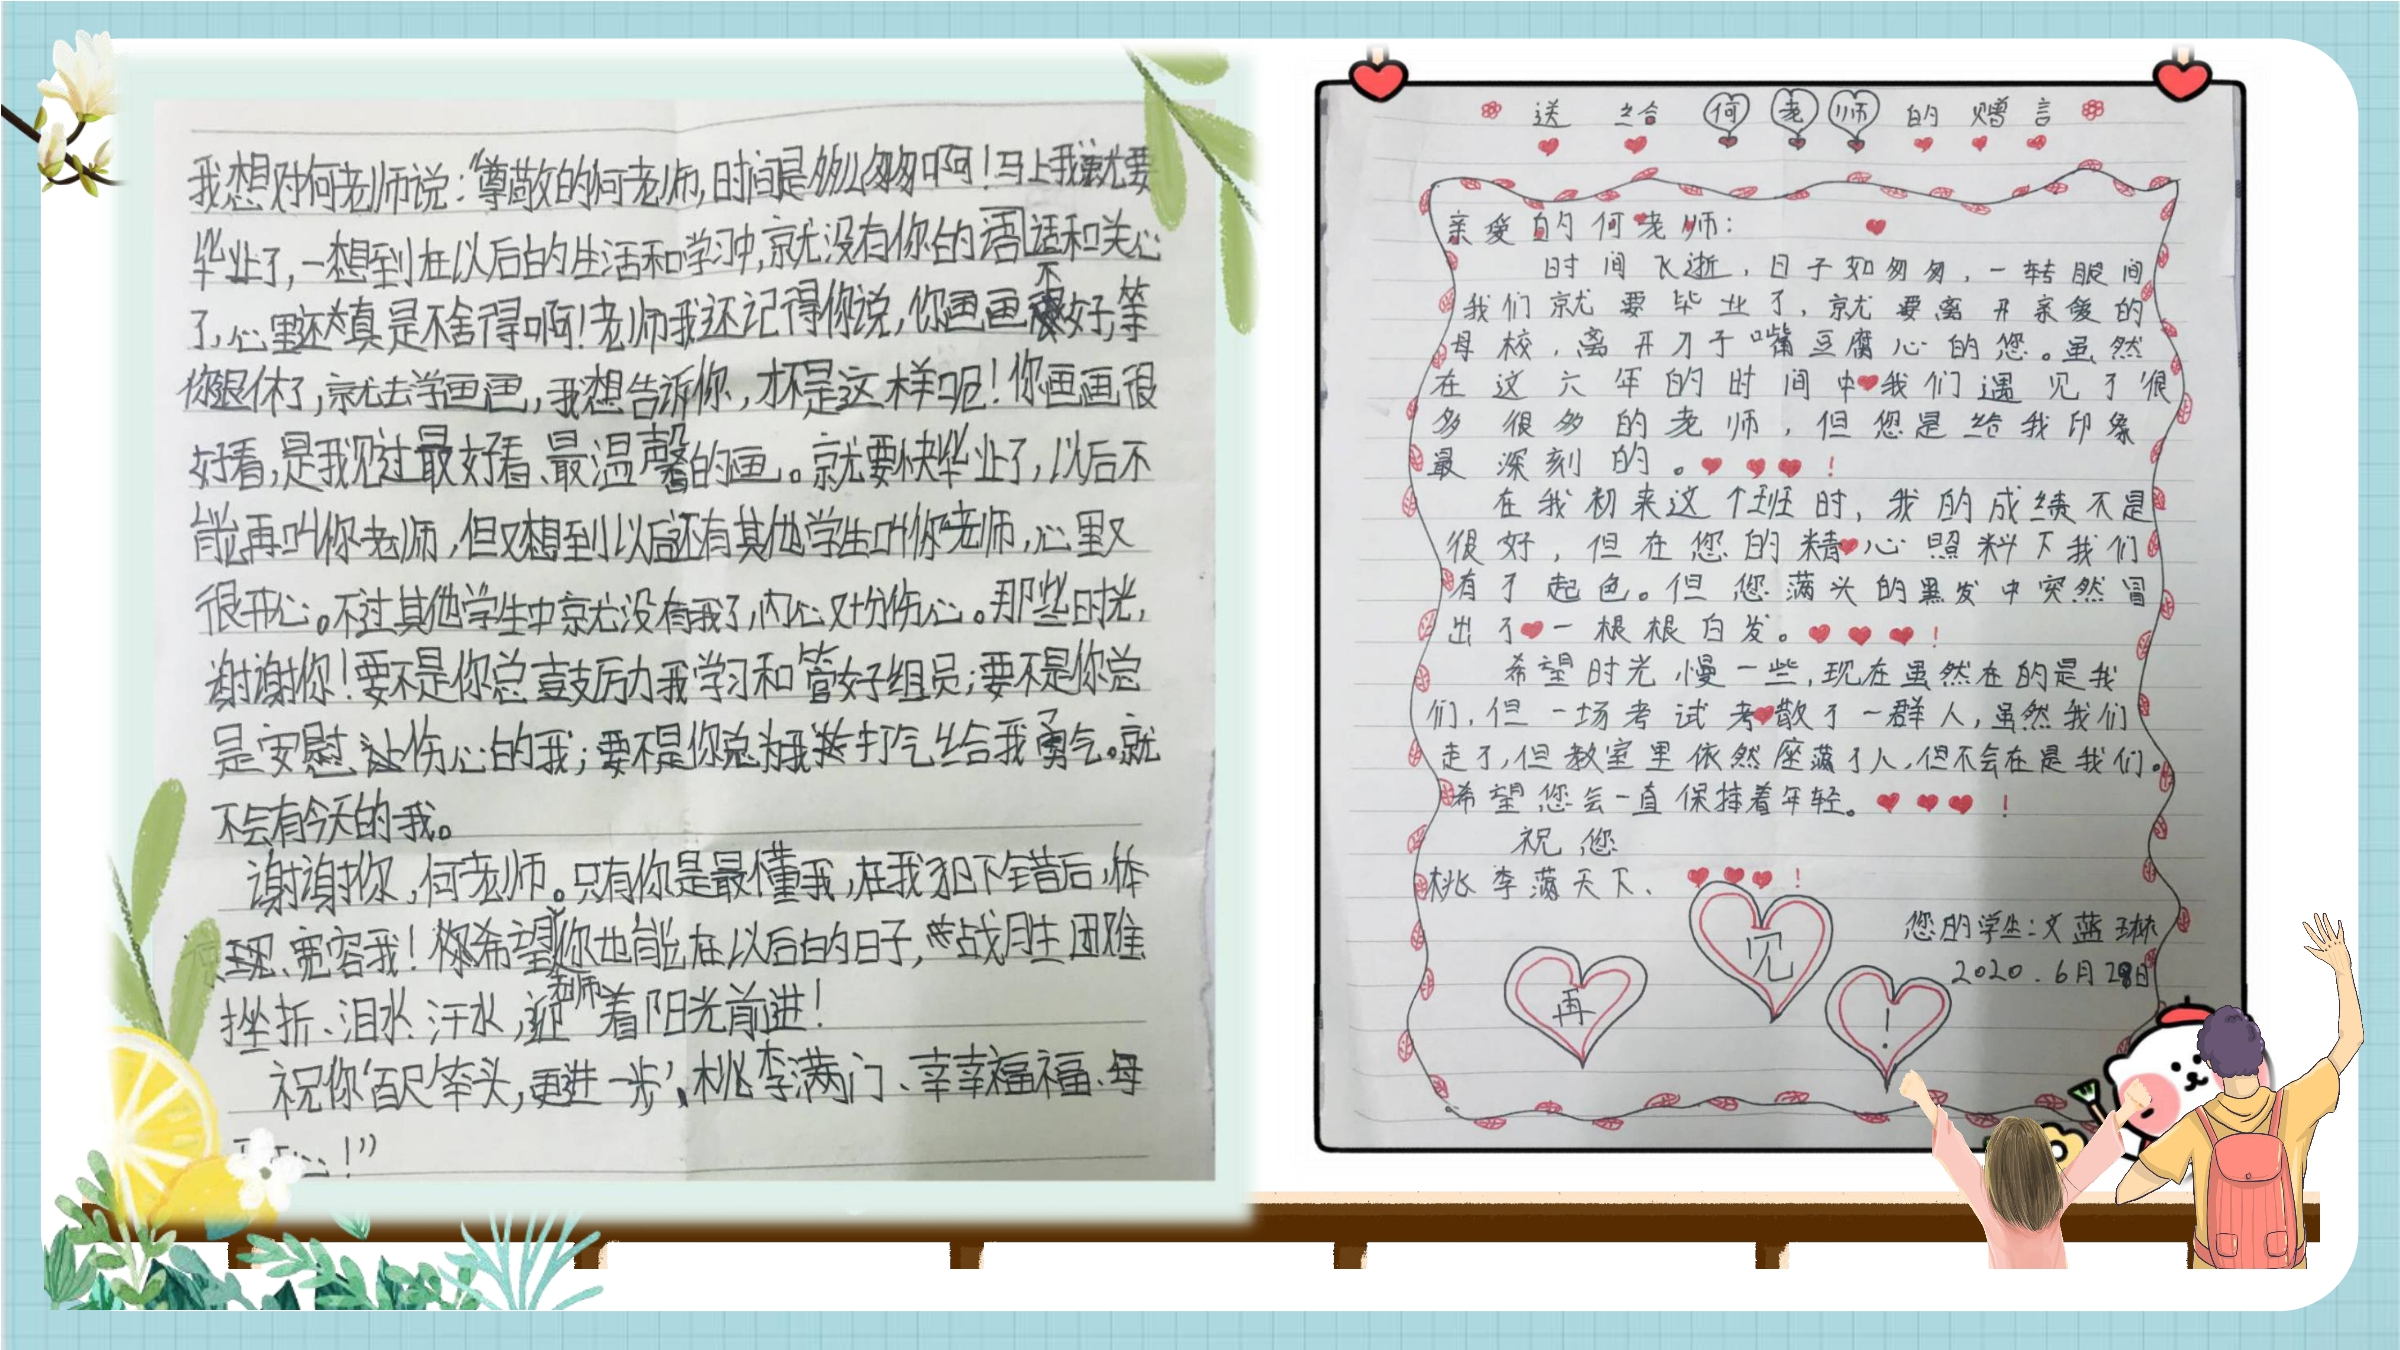 我想对何老师说：“尊敬的何老师，时间是多么匆匆啊！马上我就要
毕业了，一想到在以后的生活和学习中，就没有你的话和关心
了，心里还真是不舍得啊！老师我还记得你说，你画画不好，等
你退休了，就去学画画，我想告诉你，才不是这样呢！你画画很
好看，是我见过最好看、最温馨的画。就要快毕业了，以后不
能再叫你老师，但又想到以后还有其他学生叫你老师，心里又
很开心。不过其他学生中就没有我了，内心又十分伤心。那些时光，
谢谢你！要不是你总鼓厉力我学习和管好组员；要不是你总
是安慰让伤心的我；要不是你总为我打气给我勇气。就
不会有今天的我。
谢谢你，何老师。只有你是最懂我，在我犯下错后，体
现、宽容我！希望你也能在以后的日子，战胜困难
挫折、泪水、汗水，迎着阳光前进！
老师
祝你‘百尺竿头，更进一步’、桃李满门、幸幸福福、
心！”
送给何老师的赠言
亲爱的何老师：
时间飞逝，日子如匆匆，一转眼间
我们就要毕业了，就要离开亲爱的
母校，离开刀子嘴豆腐心的您。虽然
在这六年的时间中我们遇见了很
多很多的老师，但您是给我印象
最深刻的。！
在我初来这个班时，我的成绩不是
很好，但在您的精心照料下我们
有了起色。但您满头的黑发中突然冒
出了一根根白发。！
希望时光慢一些，现在虽然在的是我
们，但一场考试考散了一群人，虽然我们
走了，但教室里依然座满了人，但不会在是我们。
希望您会一直保持着年轻。！
祝您
桃李满天下、！
您的学生：文蓝琳
2020.6月28日
再见！